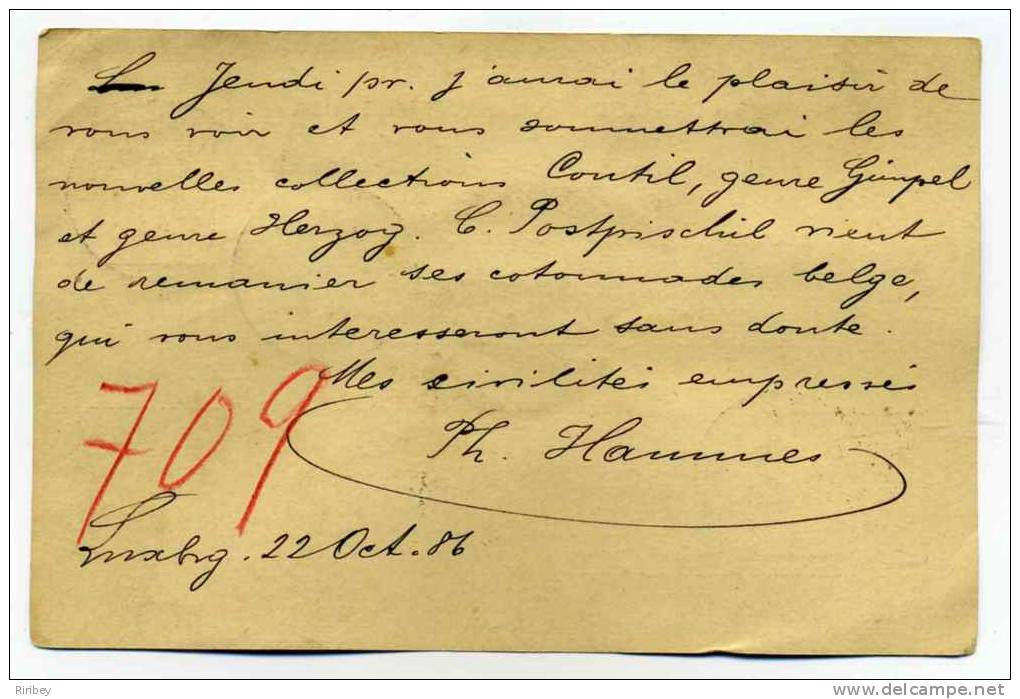 Jeudi pr. j'aurai le plaisir de
vous voir et vous soumettrai les
nouvelles collections Coutil, genre Gimpel
et genre Herzog. C. Postpischil vient
de remanier ses cotonnades belge,
qui vous interesseront sans doute.
Mes civilités empressés
Ph. Hammes
709
Luxbrg. 22 Oct. 86
Riribey
www.delcampe.net